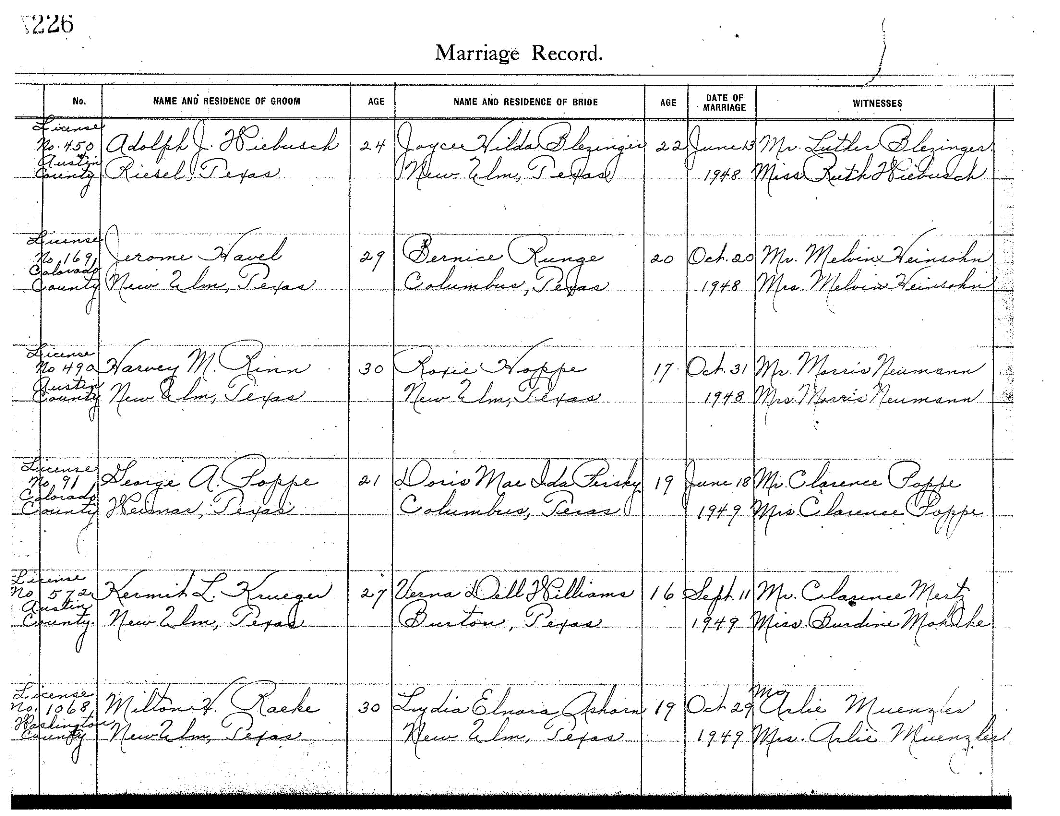 226
Marriage Record.
No. NAME AND RESIDENCE OF GROOM AGE NAME AND RESIDENCE OF BRIDE AGE DATE OF MARRIAGE WITNESSES
License
No. 450 Adolph J. Wiebusch 24 Joyce Hilda Blezinger 22 June 13 Mr. Luther Blezinger
Austin
County Riesel, Texas New Ulm, Texas 1948 Miss Ruth Wiebusch
License
No. 169 Jerome Havel 29 Bernice Runge 20 Oct. 20 Mr. Melvin Heinsohn
Colorado
County New Ulm, Texas Columbus, Texas 1948 Mrs. Melvin Heinsohn
License
No 490 Harvey M. Rinn 30 Roxie Hoppe 17 Oct. 31 Mr. Morris Neumann
Austin
County New Ulm, Texas New Ulm, Texas 1948 Mrs. Morris Neumann
License
No. 91 George A. Poppe 21 Doris Mae Ida Persky 19 June 18 Mr. Clarence Poppe
Colorado
County Weimar, Texas Columbus, Texas 1949 Mrs Clarence Poppe
License
No. 572 Kermit L. Krueger 27 Verna Dell Williams 16 Sept. 11 Mr. Clarence Mertz
Austin
County. New Ulm, Texas Burton, Texas 1949 Miss. Burdine
License
No. 1068 Milton H. Raeke 30 Lydia Elnora Ashorn 19 Oct 29 Mr. Arlie Muenzler
Washington
County New Ulm, Texas New Ulm, Texas 1949 Mrs. Arlie Muenzler